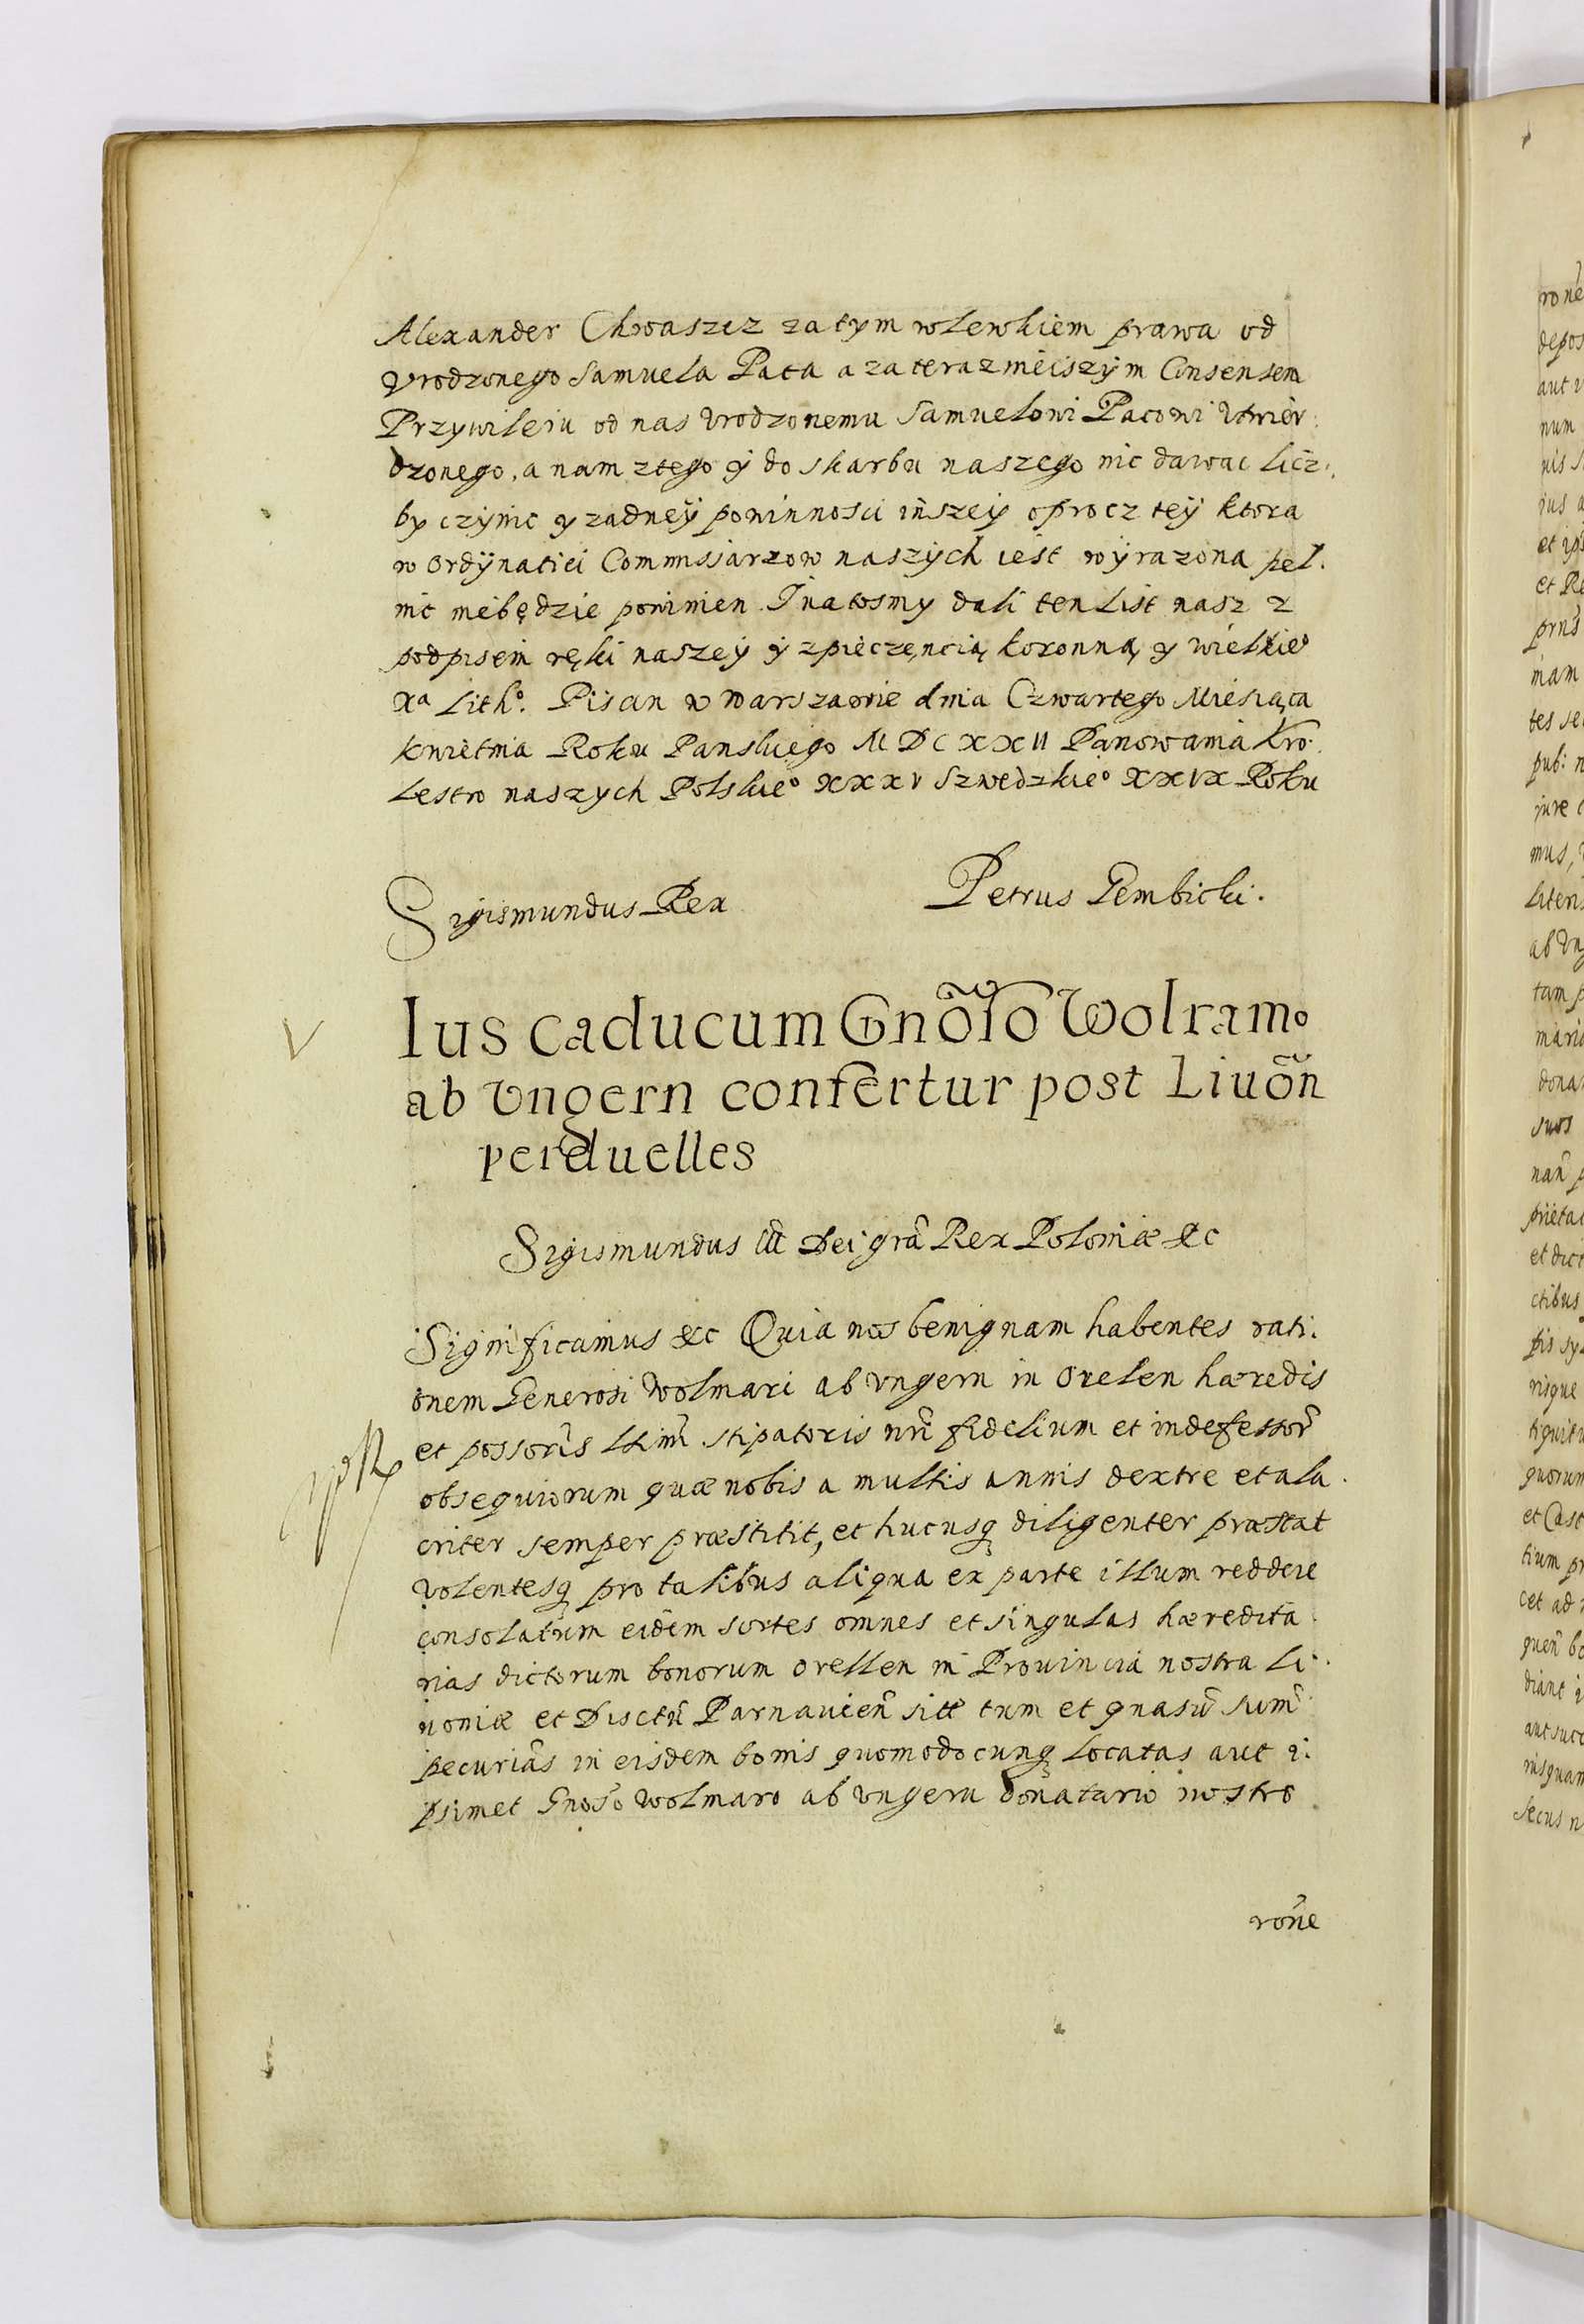 Alexander Chwaszcz za tym wlewkiem prawa od
Vrodzonego Samuela Paca a za teraznieiszym Consensem
Przywileiu od nas Vrodzonemu Samuelowi Pacowi Vtwier.
dzonego, a nam ztego ÿ do skarbu naszego nic dawac licz.
by czynic y zadneÿ powinnosci inszeÿ oprocz teÿ ktora
w Ordÿnatiei Commissarzow naszÿch iest wÿrazona pel.
nic niebędzie powinien. Inatosmy dali ten List nasz z
podpisem ręki naszeÿ ÿ zpieczęncią koronną y wielkie°
Xa Lith°. Pisan w Warszawie dnia Czwartego Miesiąca
kwietnia Roku Panskiego MDCXXII Panowania kro.
lestw naszych Polskie° XXXV Szwedzkie° XXIX Roku
Sigismundus Rex Petrus Gembicki.
V Ius caducum Gnõso Wolramo
ab Vngern confertur post Liuõn
perduelles
Sigismundus III Dei grã Rex Poloniæ &c
Significamus &c Quia nos benignam habentes rati.
onem Generosi Wolmari ab Vngern in Orelen hæredis
et possoris stipatoris nri fidelium et indefessor
obsequiorum quæ nobis a multis annis dextre et ala.
criter semper præstitit, et hucusq diligenter præstat
volentesq pro talibus aliqua ex parte illum reddere
consolatum eidem sortes omnes et singulas hæredita.
rias dictorum bonorum Orellen in Prouincia nostra Li.
uoniæ et Disctu Parnauien sitæ tum et quasuis sum
pecurias in eisdem bonis quomodocunq locatas aut i.
psimet Gnoso Wolmaro ab Vngern donatario nostro
rone